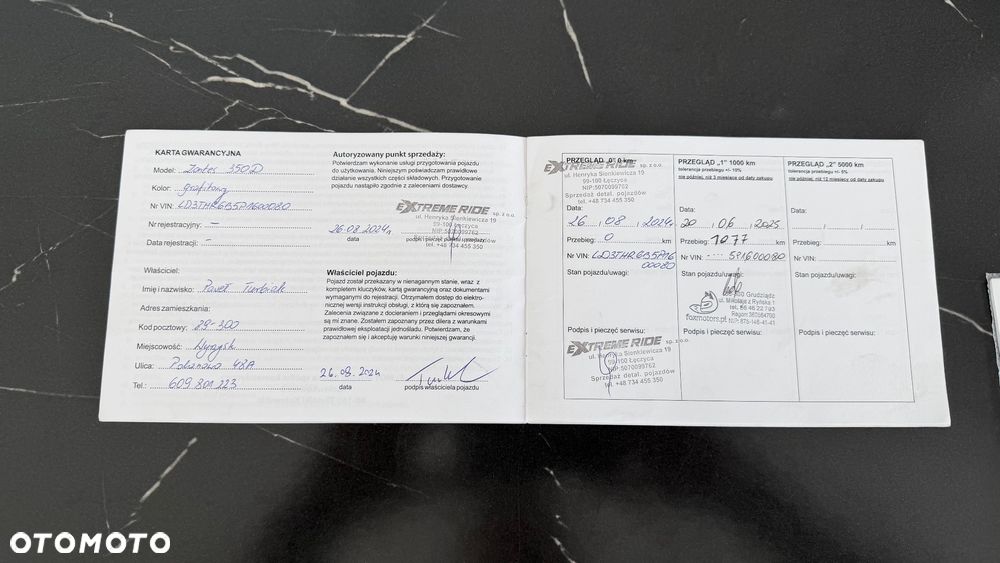 KARTA GWARANCYJNA
Model: Zontes 350D
Kolor: grafitowy
Nr VIN: LD3THR6B5P1600080
Nr rejestracyjny: –
Data rejestracji: –
Właściciel:
Imię i nazwisko: Paweł
Adres zamieszkania:
Kod pocztowy: 89-300
Miejscowość: Wyrzysk
Ulica: 48A
Tel.: 609 801 223
Autoryzowany punkt sprzedaży:
Potwierdzam wykonanie usługi przygotowania pojazdu
do użytkowania. Niniejszym poświadczam prawidłowe
działanie wszystkich części składowych. Przygotowanie
pojazdu nastąpiło zgodnie z zaleceniami dostawcy.
EXTREME RIDE sp. z o.o.
ul. Henryka Sienkiewicza 19
99-100 Łęczyca
NIP:5070099762
26.08.2024r.
data podpis i pieczęć punktu sprzedaży
tel. +48 734 455 350
Właściciel pojazdu:
Pojazd został przekazany w nienagannym stanie, wraz z
kompletem kluczyków, kartą gwarancyjną oraz dokumentami
wymaganymi do rejestracji. Otrzymałem dostęp do elektro-
nicznej wersji instrukcji obsługi, z którą się zapoznałem.
Zalecenia związane z docieraniem i przeglądami okresowymi
są mi znane. Zostałem zapoznany przez dilera z warunkami
prawidłowej eksploatacji jednośladu. Potwierdzam, że
zapoznałem się i akceptuję warunki niniejszej gwarancji.
26.08.2024
data podpis właściciela pojazdu
PRZEGLĄD „0" 0 km
EXTREME RIDE sp. z o.o.
ul. Henryka Sienkiewicza 19
99-100 Łęczyca
NIP:5070099762
Sprzedaż detal. pojazdów
tel. +48 734 455 350
Data:
26.08.2024r
Przebieg: 0 km
Nr VIN: LD3THR6B5P16
00080
Stan pojazdu/uwagi:
Podpis i pieczęć serwisu:
EXTREME RIDE sp. z o.o.
ul. Henryka Sienkiewicza 19
99-100 Łęczyca
NIP:5070099762
Sprzedaż detal. pojazdów
tel. +48 734 455 350
PRZEGLĄD „1" 1000 km
tolerancja przebiegu +/- 10%
nie później, niż 3 miesiące od daty zakupu
Data:
20.06.2025
Przebieg: 1077 km
Nr VIN: ---- 5P1600080
Stan pojazdu/uwagi:
Grudziądz
ul. Mikołaja z Ryńska 1
foxmotors.pl
Podpis i pieczęć serwisu:
PRZEGLĄD „2" 5000 km
tolerancja przebiegu +/- 5%
nie później, niż 12 miesięcy od daty zakupu
Data:
Przebieg: km
Nr VIN:
Stan pojazdu/uwagi:
Podpis i pieczęć serwisu:
OTOMOTO